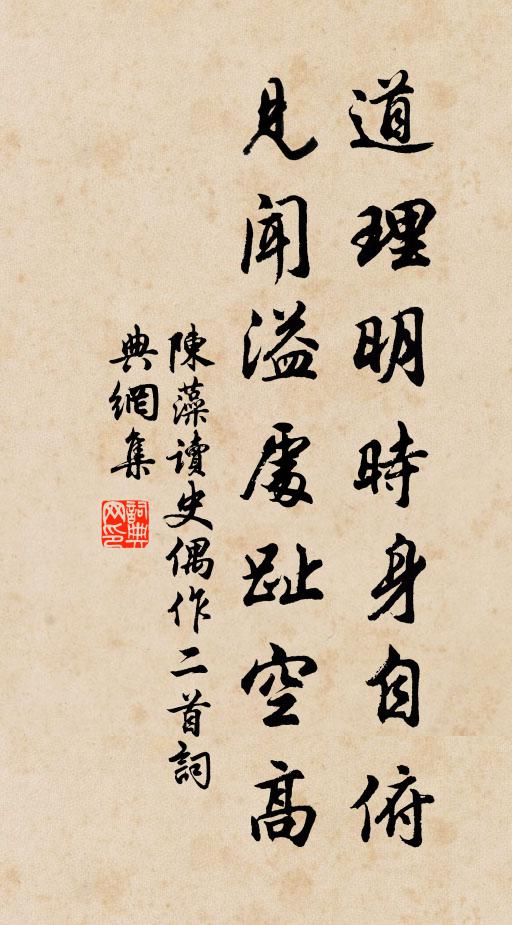 道理明時身自俯
見聞溢處趾空高
陳藻讀史偶作二首詞
典網集
詞典
网印